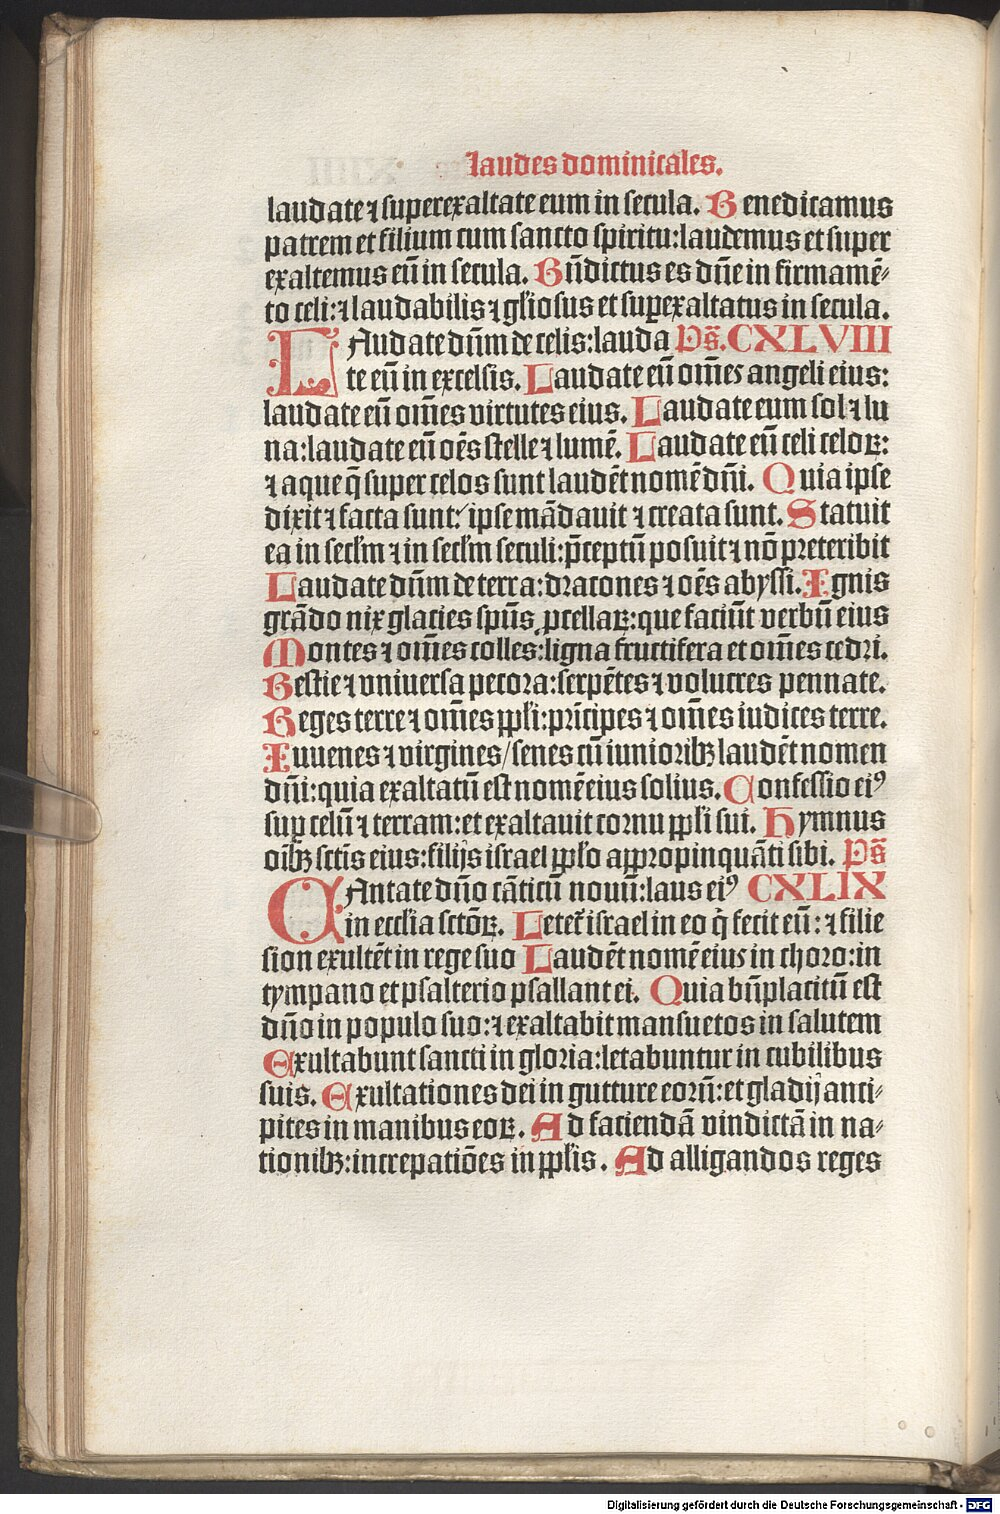 laudes dominicales.
laudate ⁊ superexaltate eum in secula. Benedicamus
patrem et filium cum sancto spiritu: laudemus et super
exaltemus eū in secula. Bn̄dictus es dn̄e in firmamē⸗
to celi: ⁊ laudabilis ⁊ gl'iosus et suꝑexaltatus in secula.
LAudate dn̄m de celis: lauda Ps̄. CXLVIII
te eū in excelsis. Laudate eū om̄es angeli eius:
laudate eū om̄es virtutes eius. Laudate eum sol ⁊ lu
na: laudate eū oēs stelle ⁊ lumē. Laudate eū celi celoꝝ:
⁊ aque q̄ super celos sunt laudēt nomē dn̄i. Quia ipse
dixit ⁊ facta sunt: ipse mādauit ⁊ creata sunt. Statuit
ea in secl'm ⁊ in secl'm seculi: p̄ceptū posuit ⁊ nō preteribit
Laudate dn̄m de terra: dracones ⁊ oēs abyssi. Ignis
grādo nix glacies spūs ꝓcellaꝝ: que faciūt verbū eius
Montes ⁊ om̄es colles: ligna fructifera et om̄es cedri.
Bestie ⁊ vniuersa pecora: serpētes ⁊ volucres pennate.
Reges terre ⁊ om̄es ppl'i: prīcipes ⁊ om̄es iudices terre.
Iuuenes ⁊ virgines/ senes cū iunioribꝫ laudēt nomen
dn̄i: quia exaltatū est nomē eius solius. Confessio eiꝰ
suꝑ celū ⁊ terram: et exaltauit cornu ppl'i sui. Hymnus
oībꝫ sctīs eius: filijs israel ppl'o appropinquāti sibi. Ps̄
CAntate dn̄o cāticū nouū: laus eiꝰ CXLIX
in eccl'ia sctōꝝ. Letet᷑ israel in eo q̄ fecit eū: ⁊ filie
sion exultēt in rege suo Laudēt nomē eius in choro: in
tympano et psalterio psallant ei. Quia bn̄placitū est
dn̄o in populo suo: ⁊ exaltabit mansuetos in salutem
Exultabunt sancti in gloria: letabuntur in cubilibus
suis. Exultationes dei in gutture eorū: et gladij anci⸗
pites in manibus eoꝝ. Ad faciendā vindictā in na⸗
tionibꝫ: increpatiōes in ppl'is. Ad alligandos reges
Digitalisierung gefördert durch die Deutsche Forschungsgemeinschaft - DFG